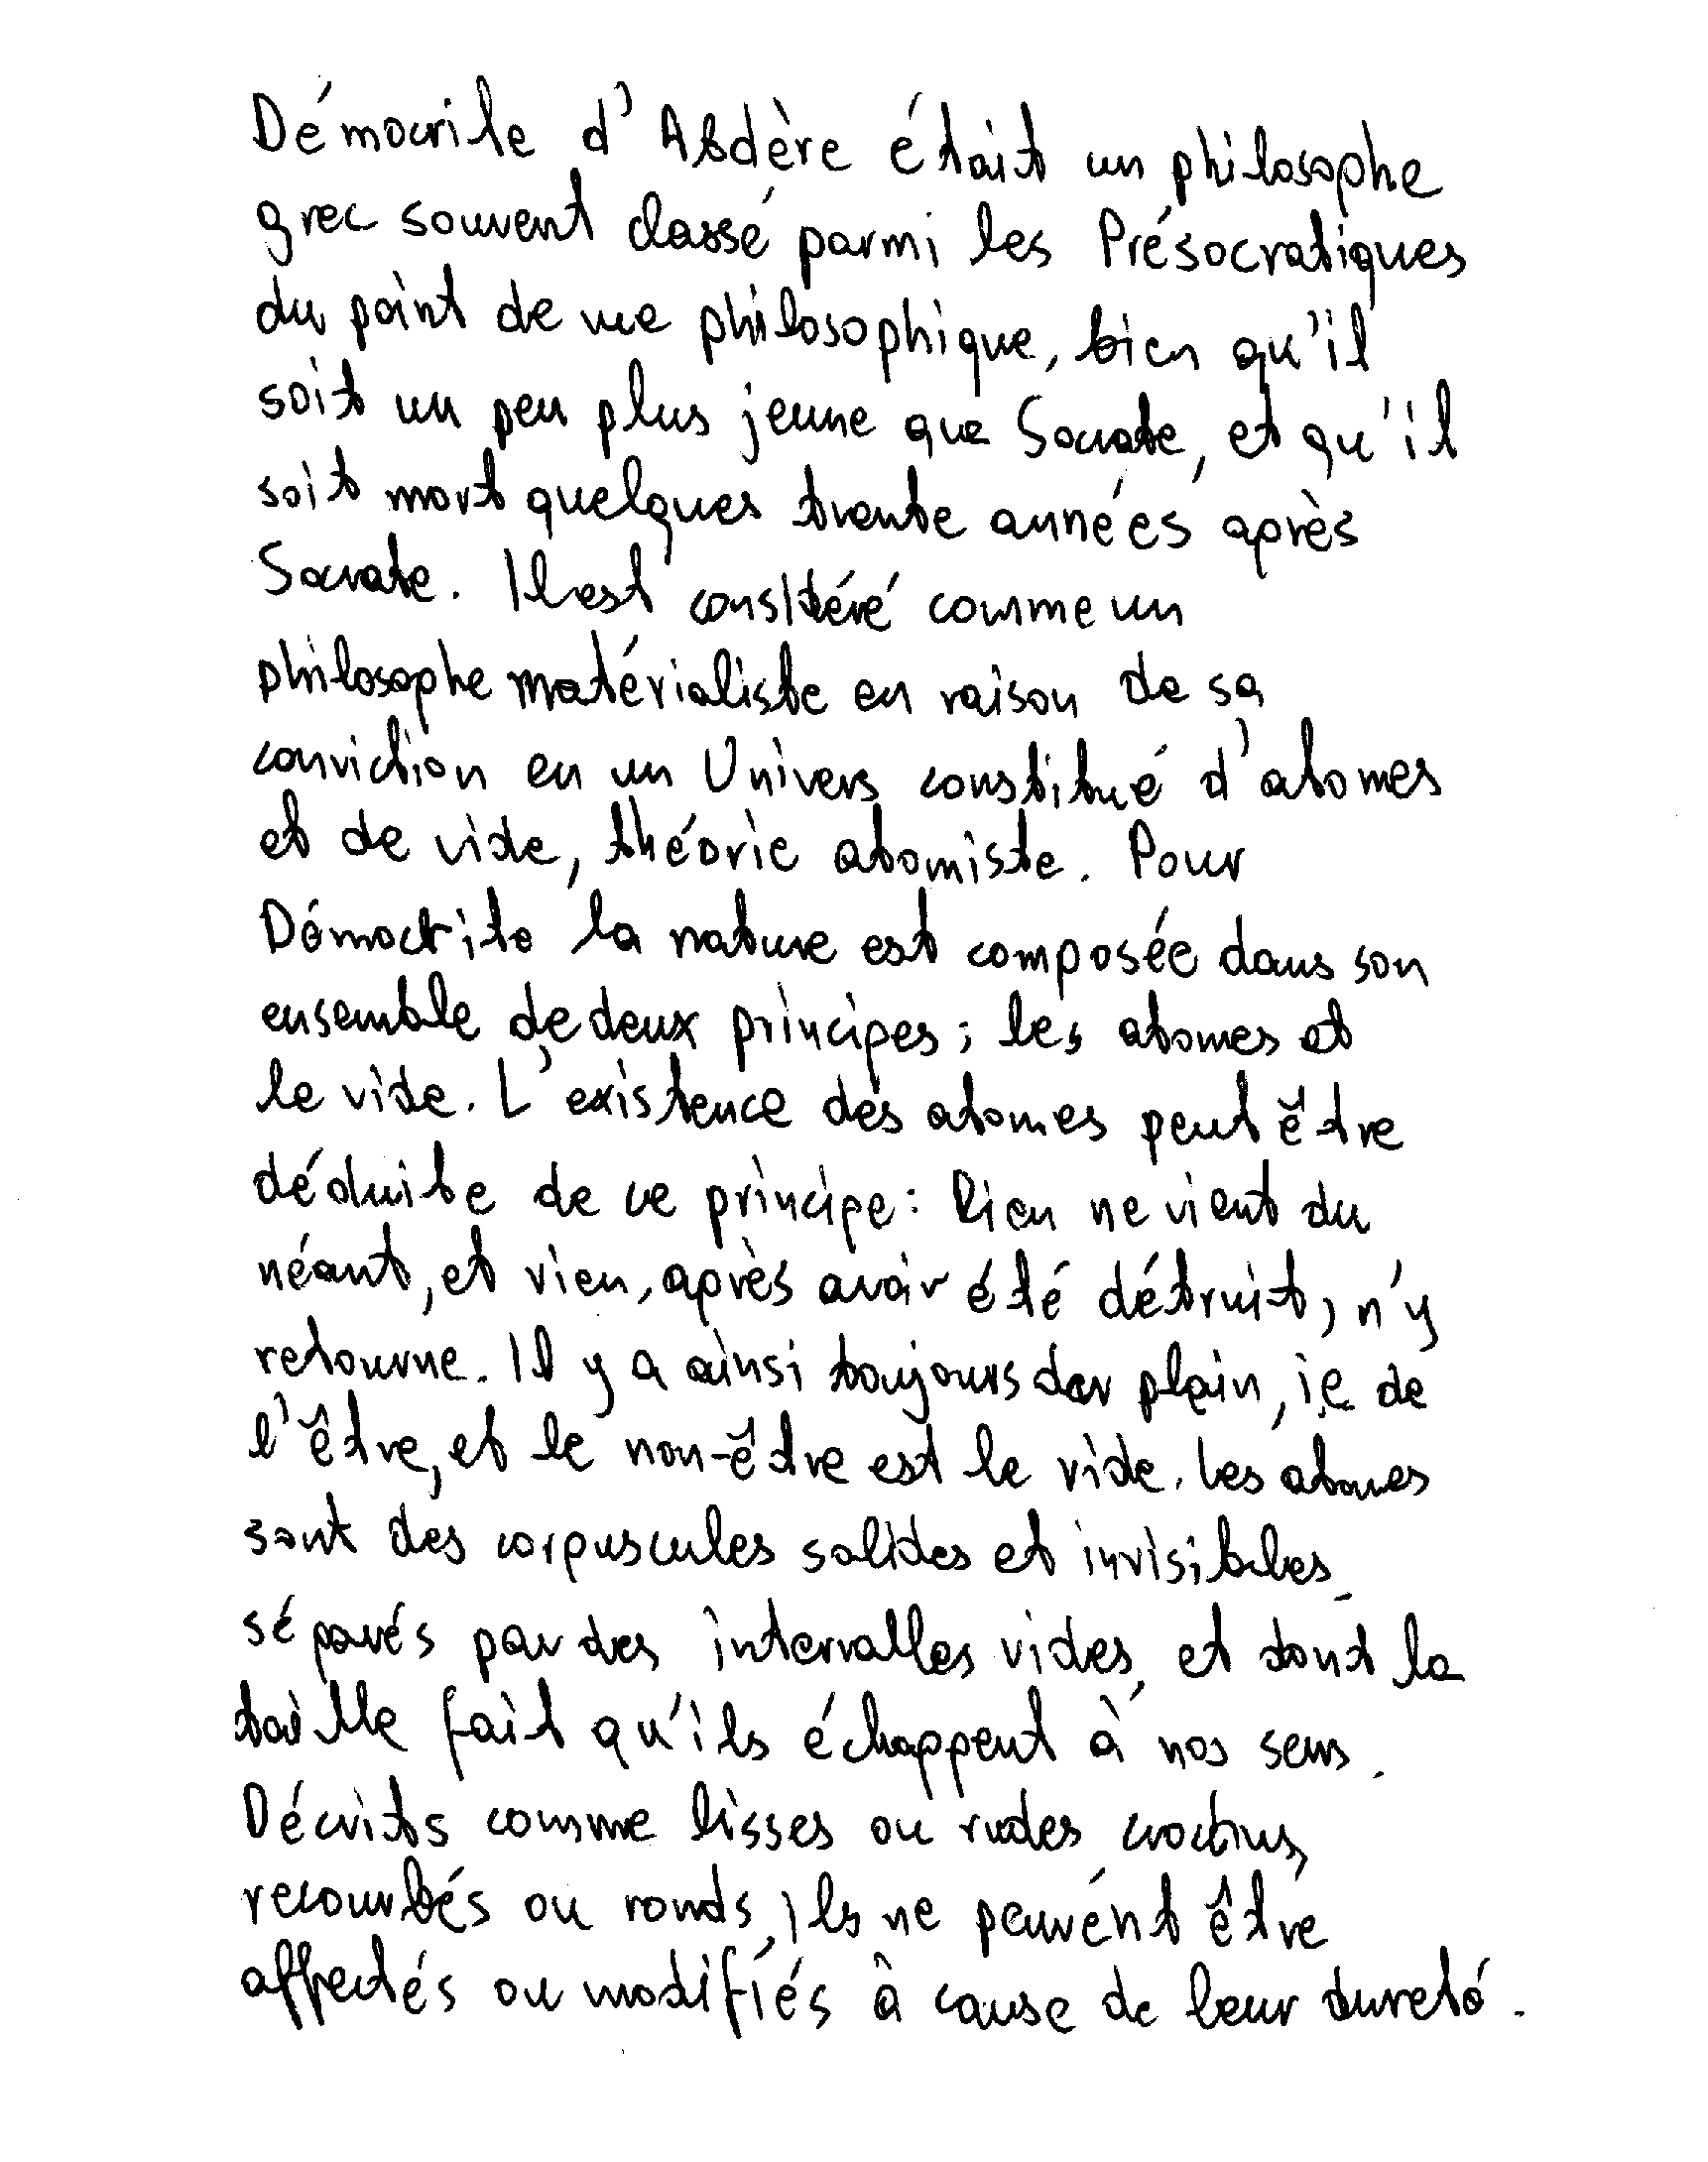 Démocrite d'Abdère était un philosophe
grec souvent classé parmi les Présocratiques
du point de vue philosophique, bien qu'il
soit un peu plus jeune que Socrate, et qu'il
soit mort quelques trente années après
Socrate. Il est considéré comme un
philosophe matérialiste en raison de sa
conviction en un Univers constitué d'atomes
et de vide, théorie atomiste. Pour
Démocrite la nature est composée dans son
ensemble de deux principes ; les atomes et
le vide. L'existence des atomes peut être
déduite de ce principe : Rien ne vient du
néant, et rien, après avoir été détruit, n'y
retourne. Il y a ainsi toujours du plein, i.e. de
l'être, et le non-être est le vide. Les atomes
sont des corpuscules solides et invisibles,
séparés par des intervalles vides, et dont la
taille fait qu'ils échappent à nos sens.
Décrits comme lisses ou rudes crochus,
recourbés ou ronds, ils ne peuvent être
affectés ou modifiés à cause de leur dureté.